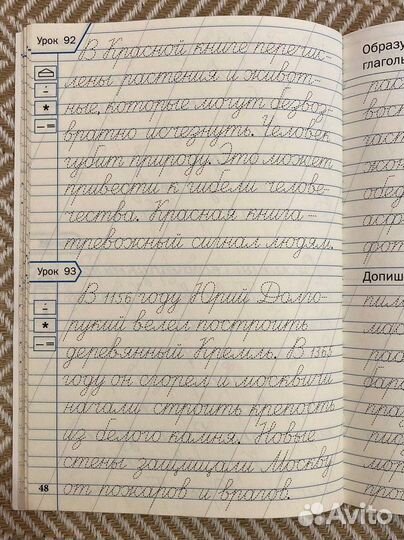 Урок 92
В Красной книге перечис-
лены растения и живот-
ные, которые могут безвоз-
вратно исчезнуть. Человек
губит природу. Это может
привести к гибели челове-
чества. Красная книга –
тревожный сигнал людям.
Урок 93
В 1156 году Юрий Долго-
рукий велел построить
деревянный Кремль. В 1365
году он сгорел и москвичи
начали строить крепость
из белого камня. Новые
стены защищали Москву
от пожаров и врагов.
48
Образу
глаголь
обед
фот
Допиш
Avito